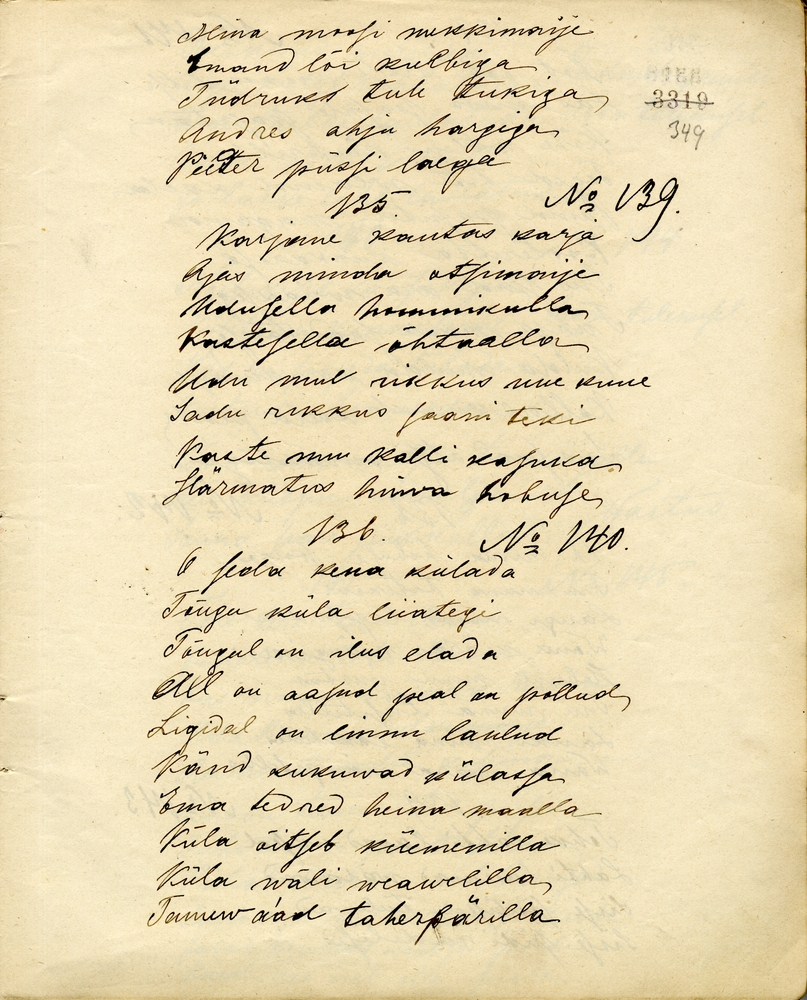 Mina moosi nukkimaije
Emand lõi kulbiga
Tüdruks tule tukiga
3319
Andres ahju hargiga
349
Peeter püssi laega
135. No 139.
Karjane kautas karja
Ajas minda otsimaije
Udusella hommikulla
Kastesella õhtaalla
Udu mul rikkus uue kuue
Sadu rikkus saani teki
Kaste mu kalli kasuka
Härmatus hüwa hobuse
136. No 140.
O seda kena külada
Tõugu küla liiategi
Tõugul on ilus elada
All on aasud peal on põllud
Ligidal on linnu laulud
Känd kukuwad külassa
Ema tedred heina maalla
Küla õitseb küemenilla
Küla wäli weawelilla